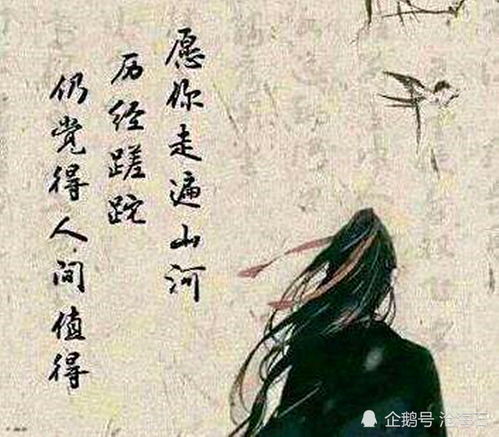 愿你走遍山河
历经蹉跎
仍觉得人间值得
企鹅号